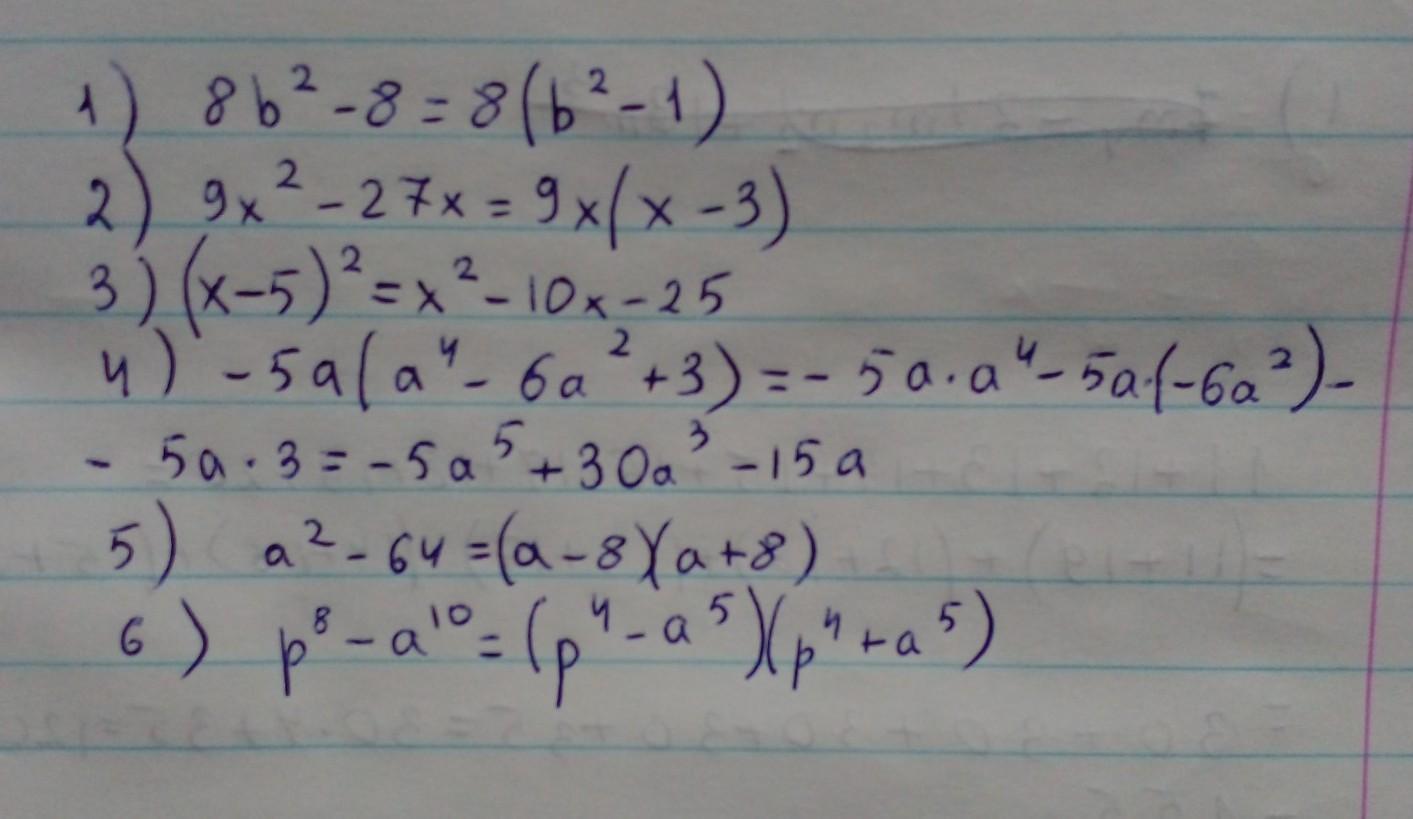 1) 8b² - 8 = 8(b² - 1)
2) 9x² - 27x = 9x(x - 3)
3) (x - 5)² = x² - 10x - 25
4) - 5a(a⁴ - 6a² + 3) = - 5a · a⁴ - 5a · (-6a²) -
- 5a · 3 = - 5a⁵ + 30a³ - 15a
5) a² - 64 = (a - 8)(a + 8)
6) p⁸ - a¹⁰ = (p⁴ - a⁵)(p⁴ + a⁵)